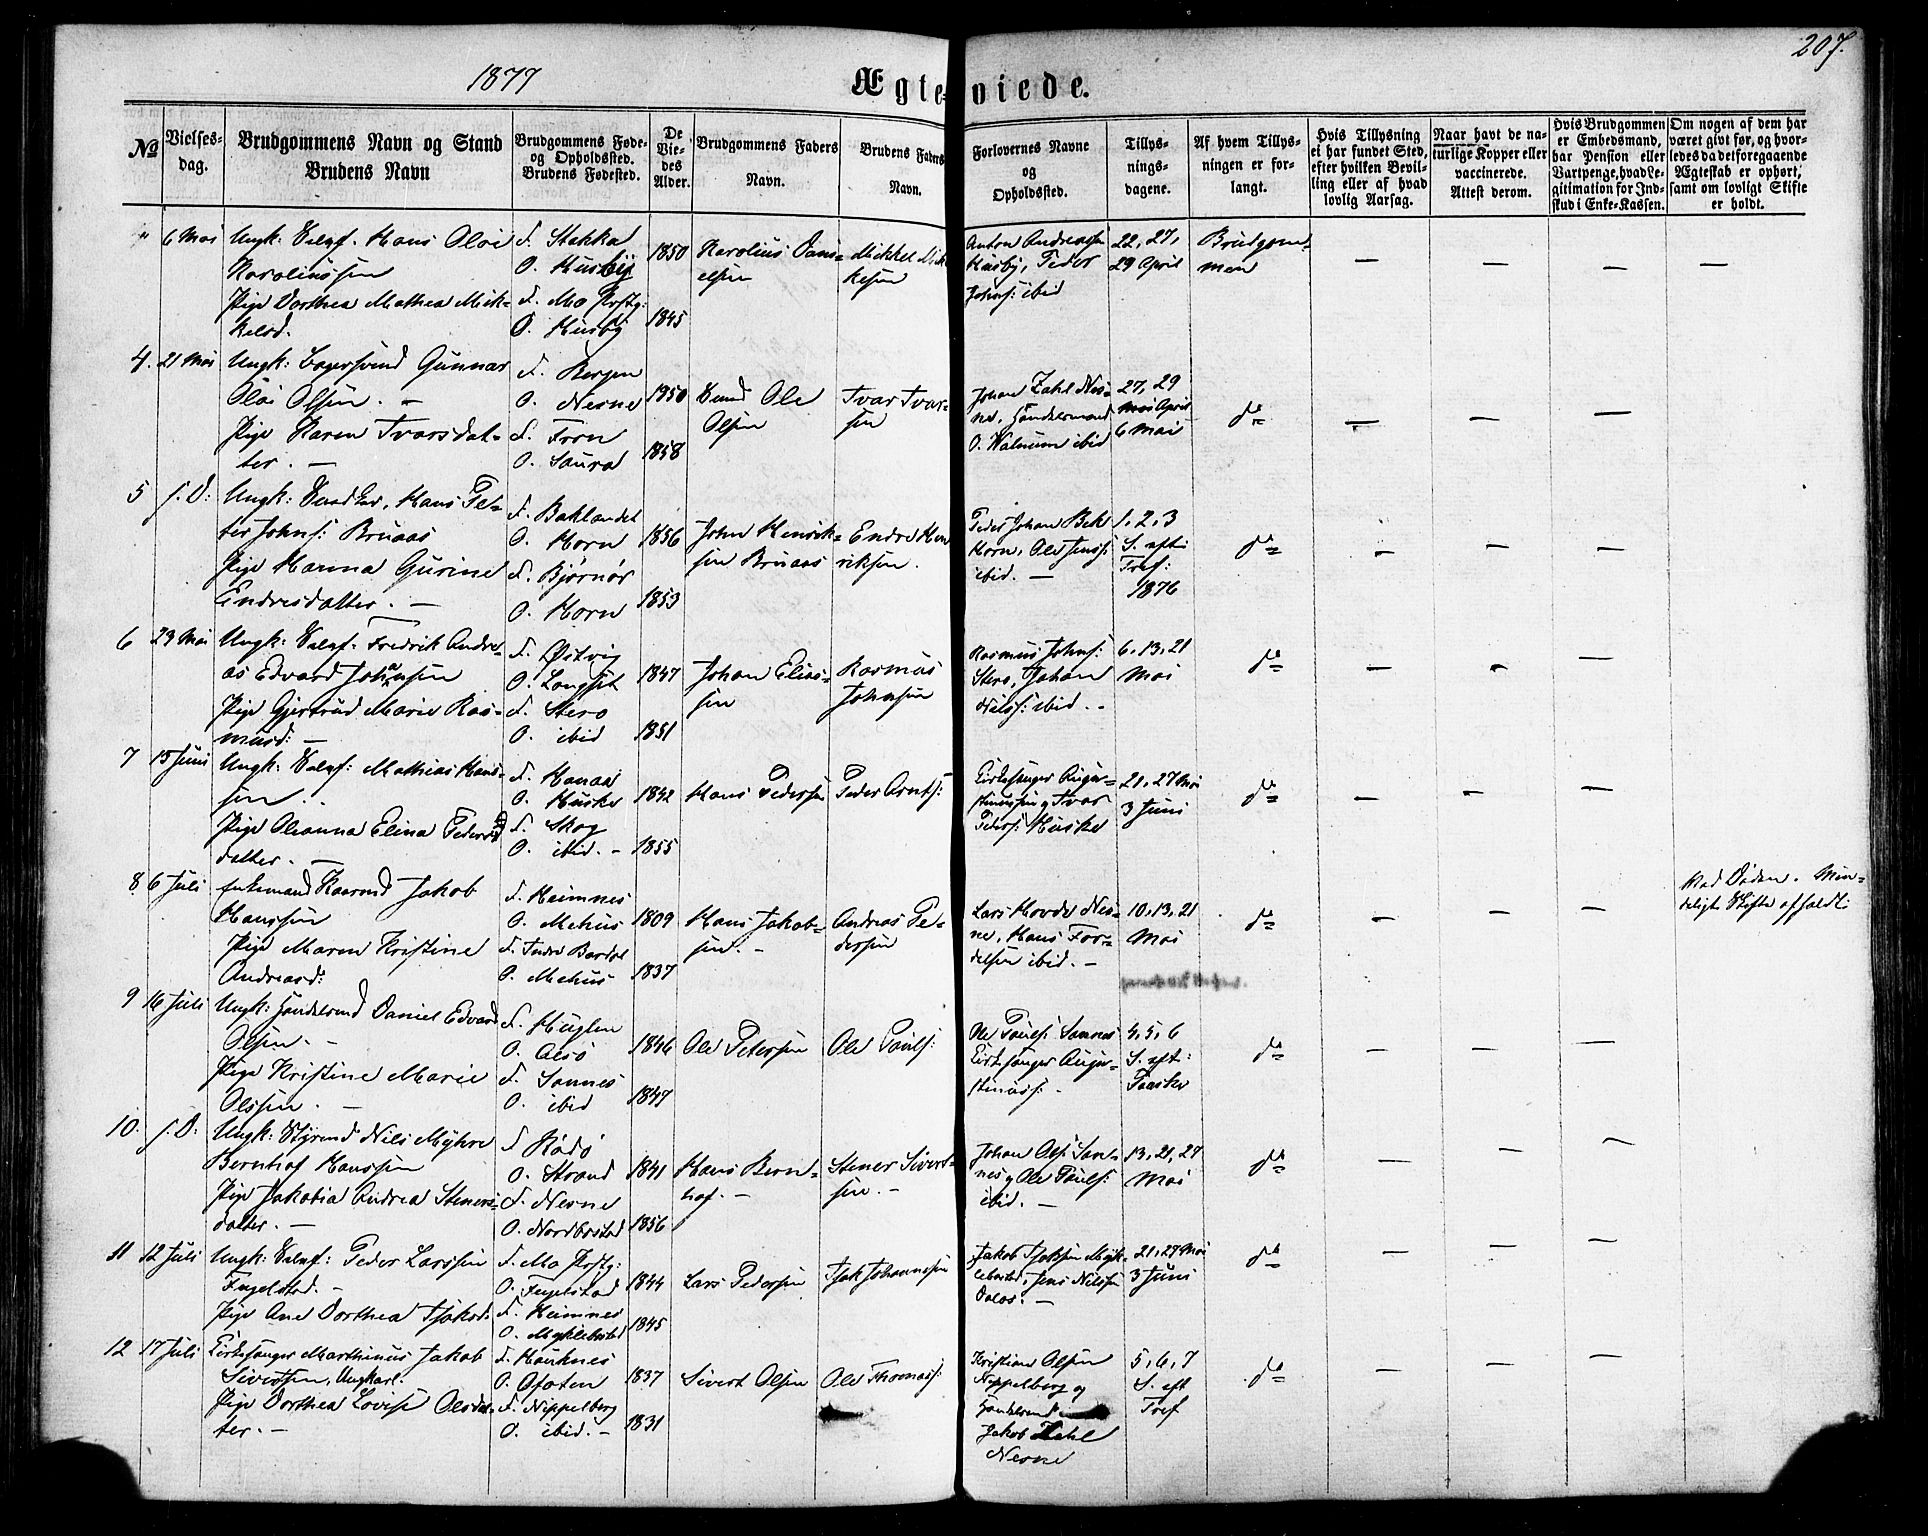 1877
Ægte-viede.
207.
№
Vielses-dag.
Brudgommens Navn og Stand
Brudens Navn
Brudgommens Føde- og Opholdssted.
Brudens Fødested.
De Vie-des Alder.
Brudgommens Faders Navn.
Brudens Faders Navn.
Forlovernes Navne og Opholdssted.
Tillys-nings-dagene.
Af hvem Tillys-ningen er for-langt.
Hvis Tillysning ei har fundet Sted, efter hvilken Bevil-ling eller af hvad lovlig Aarsag.
Naar havt de na-turlige Kopper eller vaccinerede. Attest derom.
Hvis Brudgommen er Embedsmand, har Pension eller Vartpenge, hvad Le-gitimation for Ind-skud i Enke-Kassen.
Om nogen af dem har været givt før, og hvor-ledes da det foregaaende Ægteskab er ophørt, samt om lovligt Skifte er holdt.
" 6 Mai Ungk: Hans Oloi
Karolinssen
Pige Dorthea Mathea Mik-
kelsd.
F. Stokka
O. Husby
F. Mo Prstg:
O. Husby
1850
1845
Karolius Dani-
elsen
Mikkel Mik
kelsen
Anton Andreassen
Husby, Peder
Johns: ibid
22, 27,
29 April
Brudgom-
men
4. 21 Mai Ungk: Gunnar
Oloi Olsen. -
Pige Karen Ivarsdat-
ter. -
F. Bergen
O. Nesne
F. Fron
O. Saura
1950
1858
Ole
Olsen
Ivar Ivar-
sen
Johan Zahl Nes-
ne, Handelsmand
O. Walnum ibid
27, 29
Mai April
6 Mai
do
5 s. D: Ungk: Hans Pe-
ter Johns: Bruaas
Pige Hanna Gurine
Endresdatter. -
F. Baklandet
O. Horn
F. Bjørnør
O. Horn
1856
1853
John Henrik-
sen Bruaas
Endre Hen
riksen.
Peder Johan Bek
Horn, Ole Jenss:
ibid. -
1, 2, 3
S. eft:
Tref:
1876
do
6 23 Mai Ungk: Fredrik Andre-
as Edvard Johansen
Pige Gjertrud Marie Ras-
musd: -
F. Østvig
O. Langset
F. Stero
O. ibid
1847
1851
Johan Elias-
sen
Rasmus
Johnsen
Rasmus Johns:
Stero, Johan
Nilss: ibid. -
6, 13, 21
Mai
do
7 15 Juni Ungk: Mathias Hans-
sen. .
Pige Oleanna Elina Peders
datter. -
F. Hanaas
O. Huske
F. Skog
O. ibid. -
1842
1855
Hans Pedersen
Peder Arnts:
Kirkesanger Augu-
stinussen og Ivar
Peders: Huske
21, 27 Mai
3 Juni
do
8 6 Juli Enkemand Jakob
Hanssen
Pige Maren Kristine
Andreasd:
F. Hemnes
O. Mehus
F. Indre Bardal
O. Mehus
1809
1837
Hans Jakob-
sen. -
Andreas Pe-
dersen
Lars Hovde Nes-
ne, Hans For-
delsen ibid. -
10, 13, 21
Mai
do
Ved Døden. Min-
delig Skifte afholdt:
9 16 Juli Ungk: Handelsmd Daniel Edvard
Olsen. -
Pige Kristine Marie
Olssen. -
F. Huglen
O. Alsø
F. Sannes
O. ibid
1846
1847
Ole Petersen
Ole Pauls:
Ole Pauls: Sannes
Kirkesanger Augu-
stinuss: -
4, 5, 6
S. eft:
Paaske
do
10. s. D: Ungk: Styrmd Nils Myhre
Bernhof Hanssen
Pige Jakobia Andrea Steners-
datter. -
F. Rødø
O. Strand
F. Nesne
O. Nordbostad
1841
1856
Hans Bern-
hof. -
Stener Sivert-
sen. -
Johan Ols: San-
nes og Ole Pauls:
ibid. -
13, 21, 27
Mai
do
11 12 Juli Ungk: Peder Larssen
Fugelstad. -
Pige Ane Dorthea Isaksd:
F. Mo Prstg:
O. Fugelstad
F. Hemnes
O. Myklebostad
1844
1845
Lars Pedersen
Isak Johannssen
Jakob Isaksen Myk-
lebostad, Jens Nilssen
Dalos. -
21, 27 Mai
3 Juni
do
12 17 Juli Kirkesanger Marthinus Jakob
Sivertsen, Ungkarl.
Pige Dorthea Lovise Olsdat-
ter. -
F. Hauknes
O. Ofoten
F. Neppelberg
O. ibid. -
1837
1831
Sivert Olsen
Ole Thomass:
Kristian Olsen
Neppelberg og
Handelsmd
Jakob Zahl
Nesne
5, 6, 7
S. eft
Tref
do